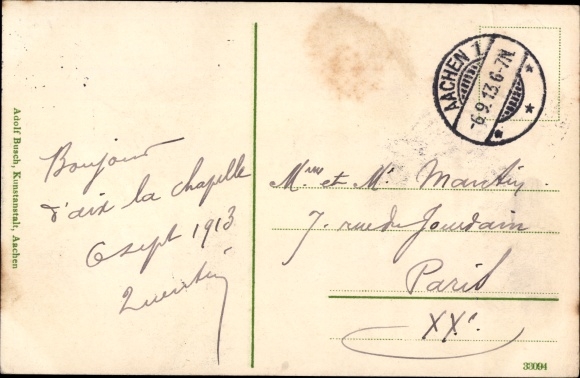 Adolf Busch, Kunstanstalt, Aachen
Bonjour
d'aix la chapelle
6 sept 1913
Quentin
AACHEN 1
-6.9.13.6-7N
Mme et Mr Mantin
7. rue du Jourdain
Paris
XXe.
33094